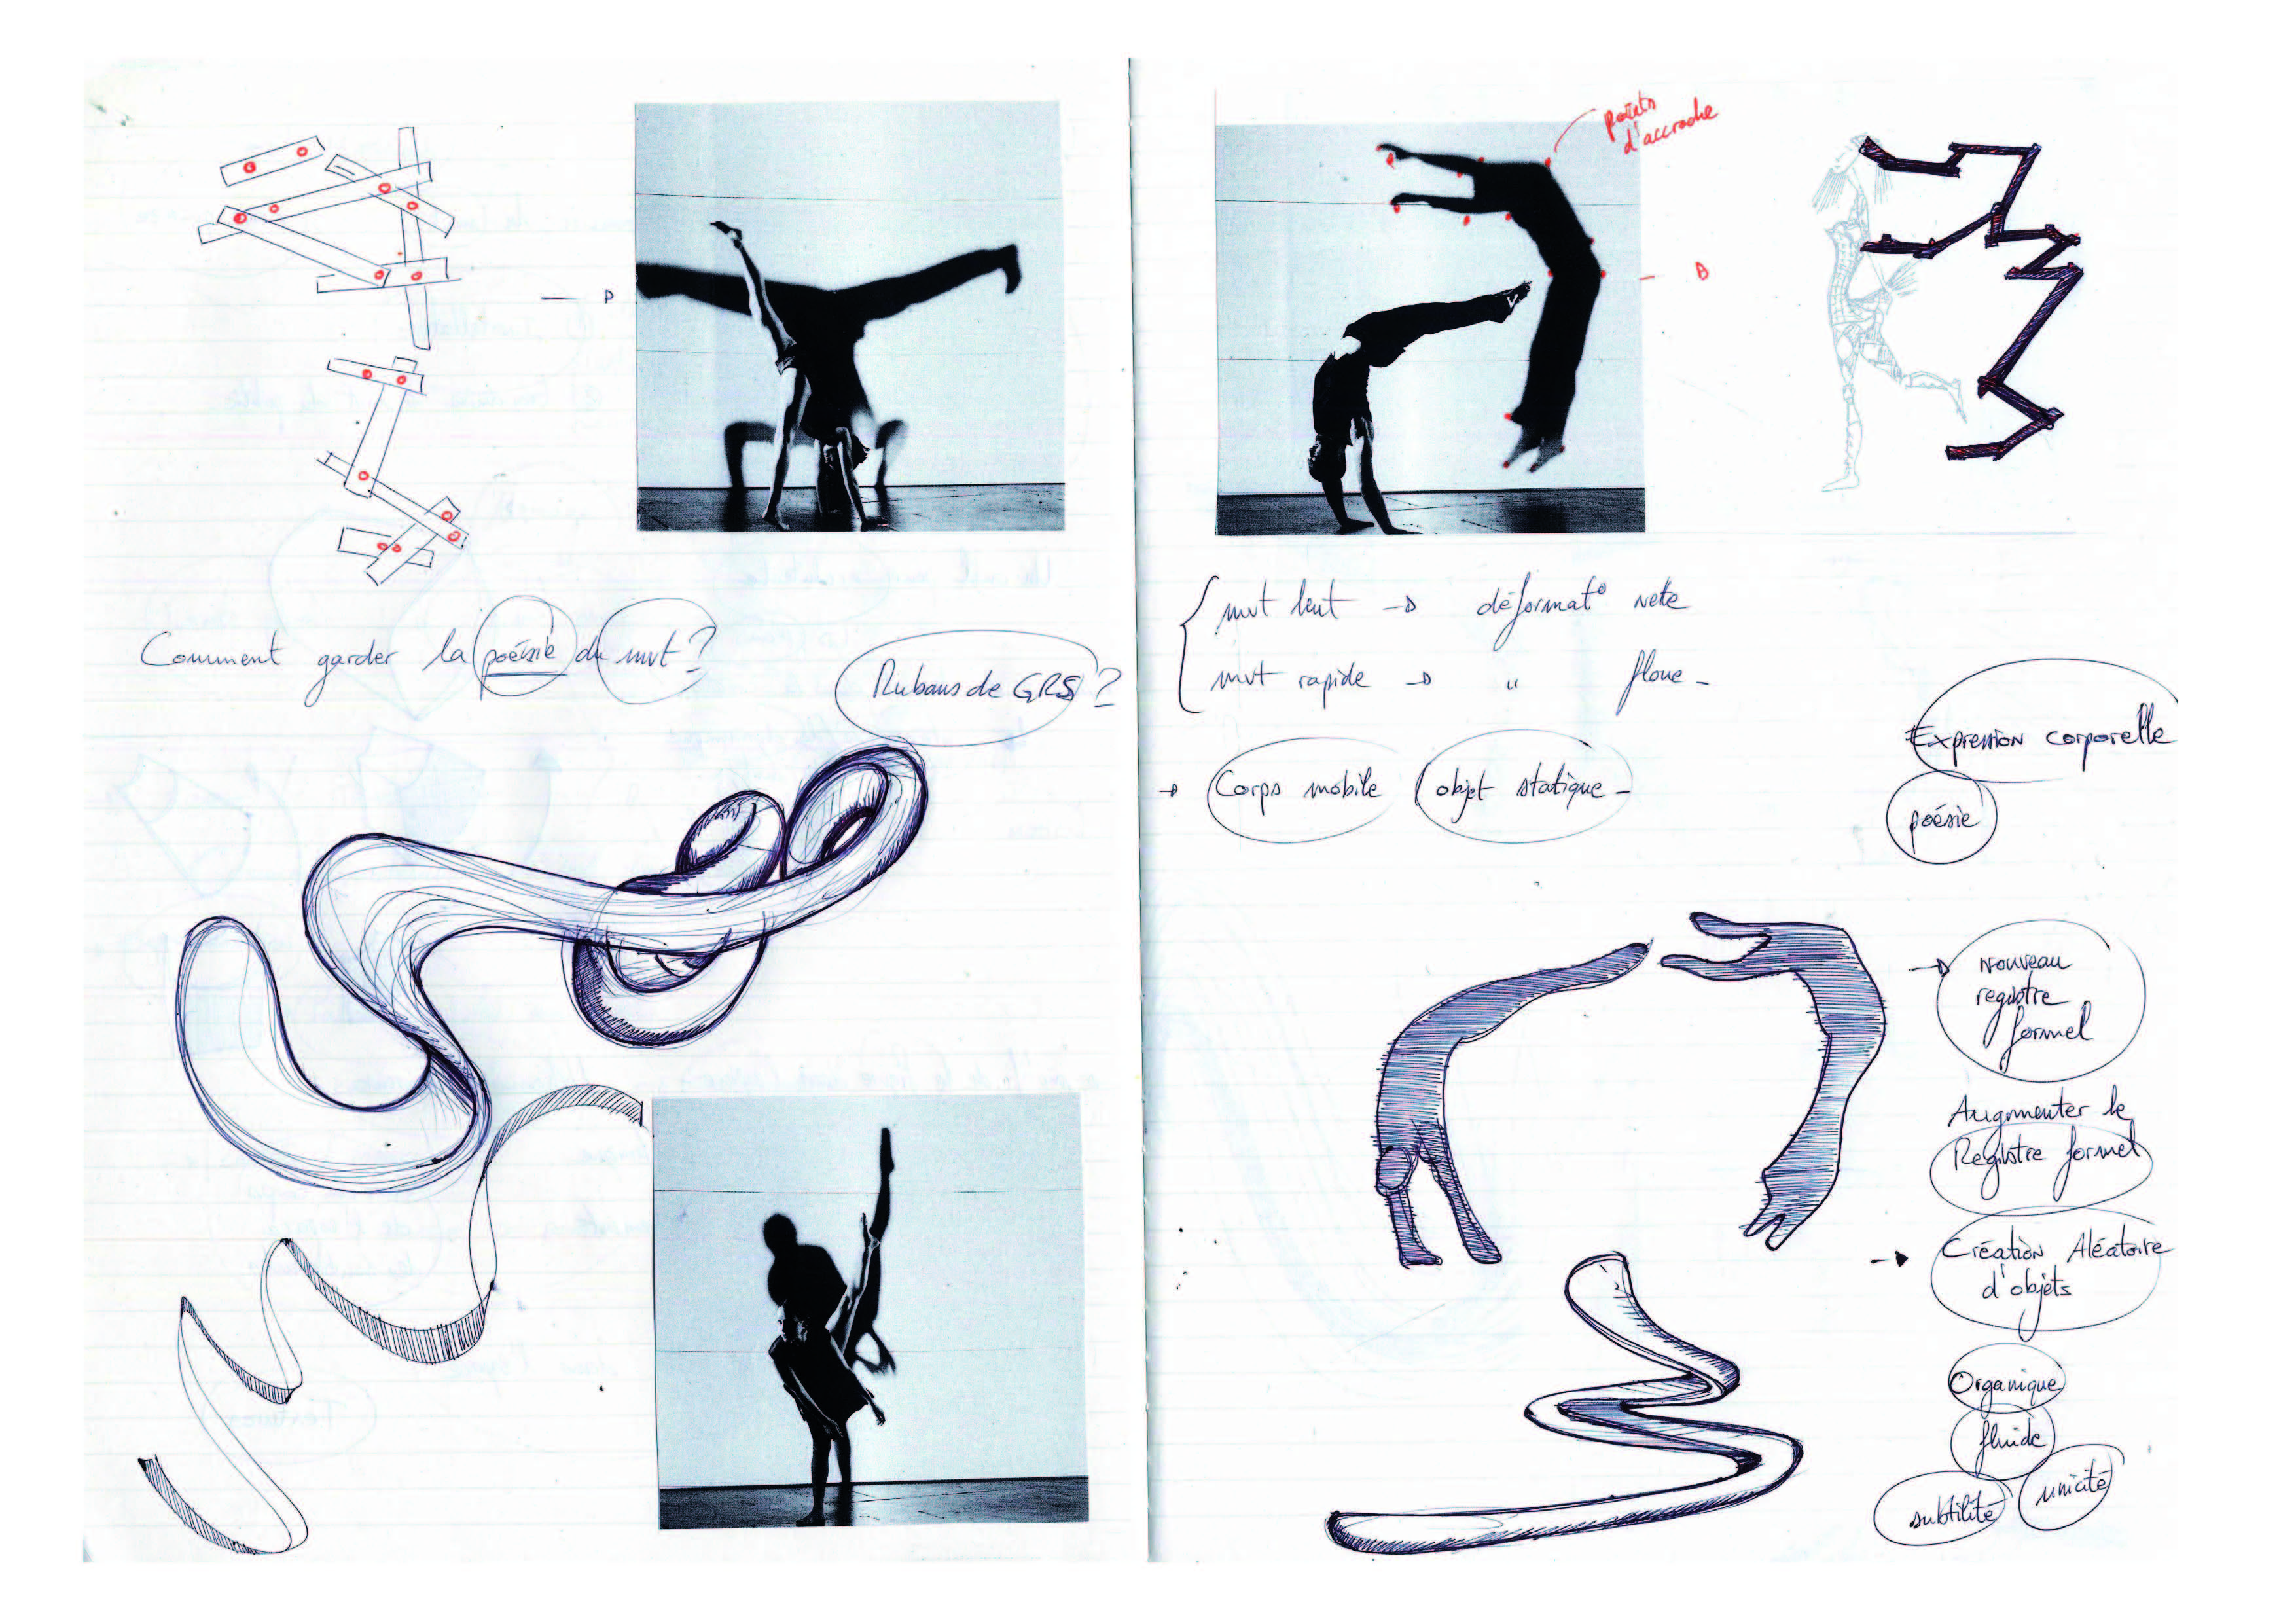 Comment garder la poésie du mvt ?
Rubans de GRS ?
points
d'accroche
mvt lent → déformat° nette
mvt rapide → " floue -
→ Corps mobile / objet statique -
Expression corporelle
poésie
→ nouveau
registre
formel
Augmenter le
Registre formel
→ Création Aléatoire
d'objets
Organique
fluide
unicité
subtilité